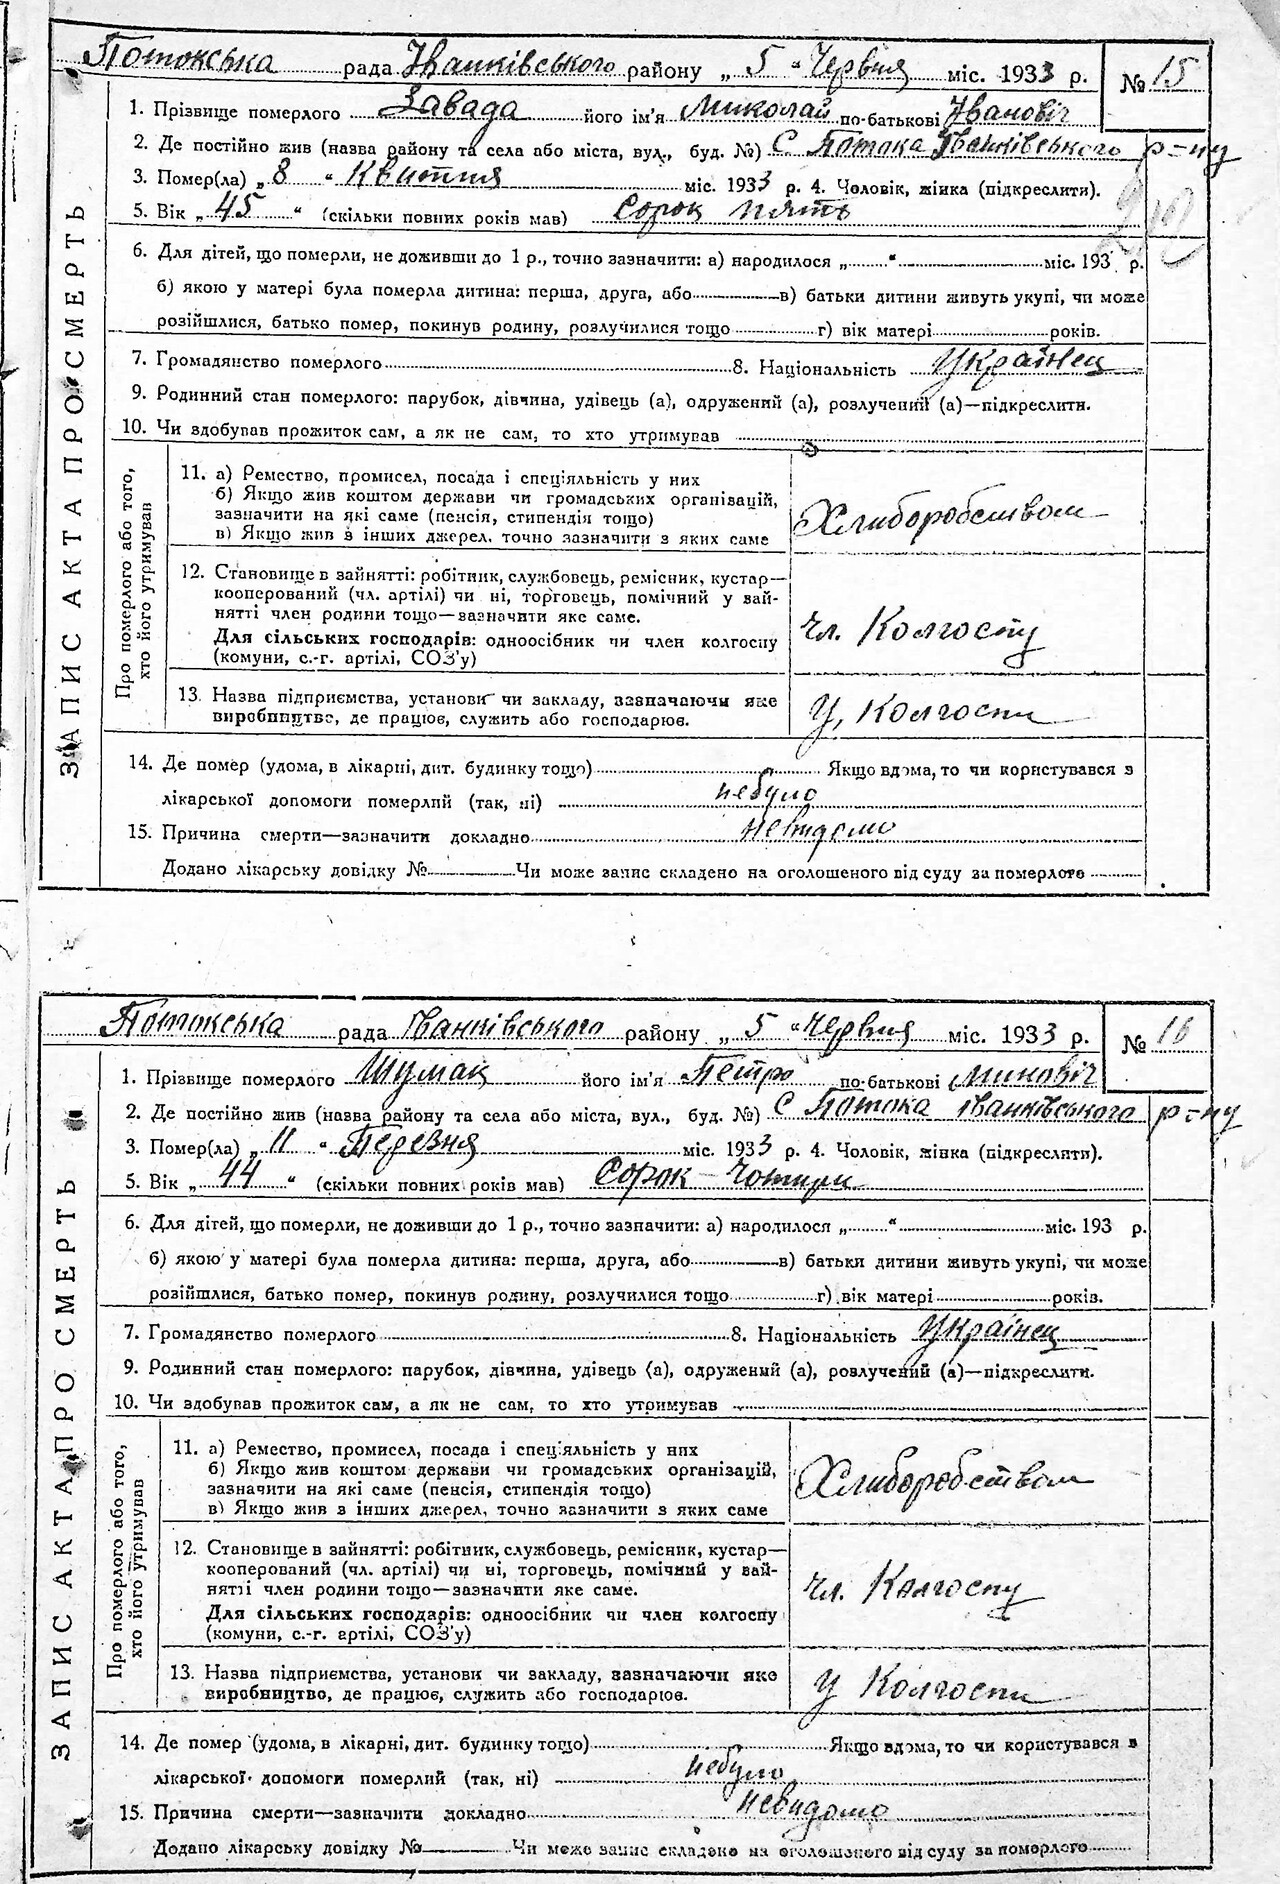 Потокська рада Іванківського району „ 5 “ Червня міс. 1933 р. № 15
1. Прізвище померлого Завада його ім'я Миколай по-батькові Івановіч
2. Де постійно жив (назва району та села або міста, вул., буд. №) С Потока Іванківського р=ну
3. Помер(ла) „ 8 “ Квитня міс. 1933 р. 4. Чоловік, жінка (підкреслити).
5. Вік „ 45 “ (скільки повних років мав) Сорок пять
6. Для дітей, що померли, не доживши до 1 р., точно зазначити: а) народилося „ “ міс. 193 р.
б) якою у матері була померла дитина: перша, друга, або в) батьки дитини живуть укупі, чи може
розійшлися, батько помер, покинув родину, розлучилися тощо г) вік матері років.
7. Громадянство померлого 8. Національність Українец
9. Родинний стан померлого: парубок, дівчина, удівець (а), одружений (а), розлучений (а)—підкреслити.
10. Чи здобував прожиток сам, а як не сам, то хто утримував
ЗАПИС АКТА ПРО СМЕРТЬ
Про померлого або того, хто його утримував
11. а) Ремество, промисел, посада і спеціяльність у них
б) Якщо жив коштом держави чи громадських організацій,
зазначити на які саме (пенсія, стипендія тощо)
в) Якщо жив з інших джерел, точно зазначити з яких саме
Хлиборобством
12. Становище в зайнятті: робітник, службовець, ремісник, кустар—
кооперований (чл. артілі) чи ні, торговець, помічний у зай-
нятті член родини тощо—зазначити яке саме.
Для сільських господарів: одноосібник чи член колгоспу
(комуни, с.-г. артілі, СОЗ'у)
чл. Колгоспу
13. Назва підприємства, установи чи закладу, зазначаючи яке
виробництво, де працює, служить або господарює.
У, Колгоспи
14. Де помер (удома, в лікарні, дит. будинку тощо) Якщо вдома, то чи користувався з
лікарської допомоги померлий (так, ні) небуло
15. Причина смерти—зазначити докладно невидомо
Додано лікарську довідку № Чи може запис складено на оголошеного від суду за померлого
Потокська рада Іванківського району „ 5 “ Червня міс. 1933 р. № 16
1. Прізвище померлого Шумак його ім'я Петро по-батькові Миновіч
2. Де постійно жив (назва району та села або міста, вул., буд. №) С Потока іванківського р=ну
3. Помер(ла) „ 11 “ Березня міс. 1933 р. 4. Чоловік, жінка (підкреслити).
5. Вік „ 44 “ (скільки повних років мав) Сорок Чотири
6. Для дітей, що померли, не доживши до 1 р., точно зазначити: а) народилося „ “ міс. 193 р.
б) якою у матері була померла дитина: перша, друга, або в) батьки дитини живуть укупі, чи може
розійшлися, батько помер, покинув родину, розлучилися тощо г) вік матері років.
7. Громадянство померлого 8. Національність Українец
9. Родинний стан померлого: парубок, дівчина, удівець (а), одружений (а), розлучений (а)—підкреслити.
10. Чи здобував прожиток сам, а як не сам, то хто утримував
ЗАПИС АКТА ПРО СМЕРТЬ
Про померлого або того, хто його утримував
11. а) Ремество, промисел, посада і спеціяльність у них
б) Якщо жив коштом держави чи громадських організацій,
зазначити на які саме (пенсія, стипендія тощо)
в) Якщо жив з інших джерел, точно зазначити з яких саме
Хлиборобством
12. Становище в зайнятті: робітник, службовець, ремісник, кустар—
кооперований (чл. артілі) чи ні, торговець, помічний у зай-
нятті член родини тощо—зазначити яке саме.
Для сільських господарів: одноосібник чи член колгоспу
(комуни, с.-г. артілі, СОЗ'у)
чл. Колгоспу
13. Назва підприємства, установи чи закладу, зазначаючи яке
виробництво, де працює, служить або господарює.
У Колгоспи
14. Де помер (удома, в лікарні, дит. будинку тощо) Якщо вдома, то чи користувався з
лікарської допомоги померлий (так, ні) небуло
15. Причина смерти—зазначити докладно невидомо
Додано лікарську довідку № Чи може запис складено на оголошеного від суду за померлого